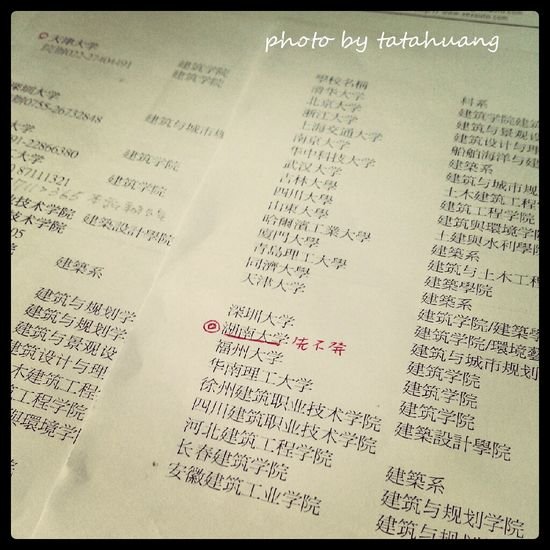 photo by tatahuang
天津大学
建筑学院
建筑学院
深圳大学
建筑与城市规
建筑学院
建筑学院
建築設計學院
建築系
建筑与规划学
建筑与规划学
建筑与景观设
建筑设计与理
木建筑工程
筑工程学院
與環境學
學校名稱
清华大学
北京大学
浙江大学
上海交通大学
南京大学
华中科技大学
武汉大学
吉林大學
四川大學
山東大學
哈爾濱工業大學
廈門大學
青島理工大學
同濟大學
天津大学
深圳大学
湖南大学
福州大学
华南理工大学
徐州建筑职业技术学院
四川建筑职业技术学院
河北建筑工程学院
长春建筑学院
安徽建筑工业学院
科系
建筑学院建筑
建筑与景观设
建筑设计与理
船舶海洋与建
建築系
建筑与城市规
土木建筑工程
建筑工程学院
建筑與環境學院
土建與水利學院
建築系
建筑与土木工程
建築學院
建築系
建筑学院/建築學
建筑学院/環境藝
建筑与城市规划
建筑学院
建筑学院
建筑学院
建築設計學院
建築系
建筑与规划学院
建筑与规划学